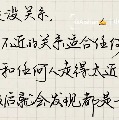 没关系，
不近的关系适合任何
和任何人走得太近
后就会发现都是一